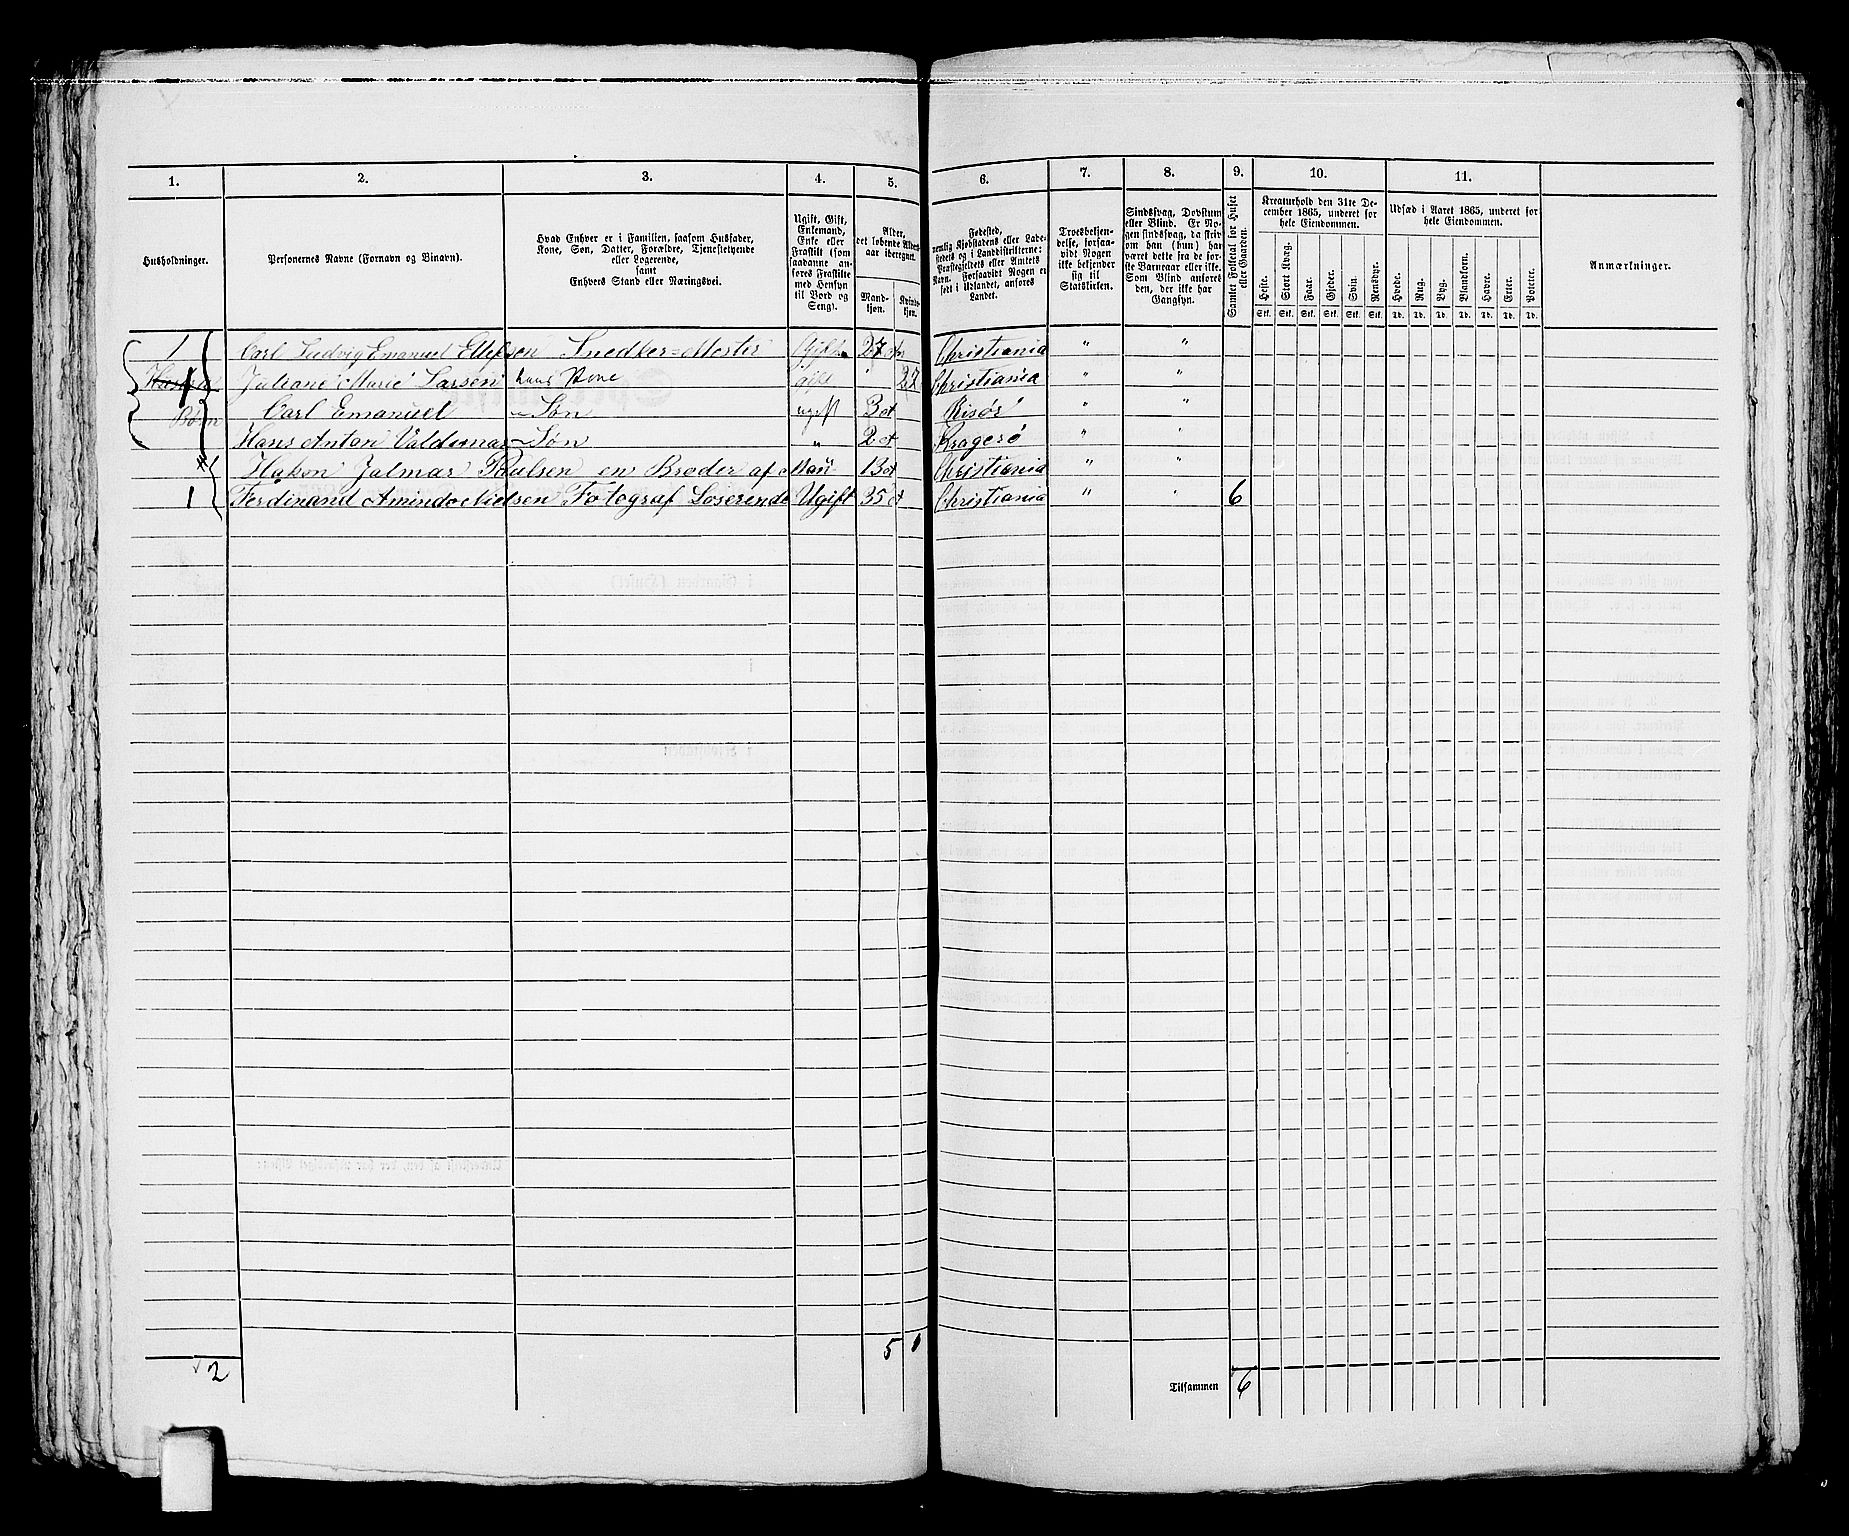 1. 2. 3. 4. 5. 6. 7. 8. 9. 10. 11.
Husholdninger.
Personernes Navne (Fornavn og Binavn).
Hvad Enhver er i Familien, saasom Husfader,
Kone, Søn, Datter, Forældre, Tjenestetyende
eller Logerende,
samt
Enhvers Stand eller Næringsvei.
Ugift, Gift,
Enkemand,
Enke eller
Fraskilt (som
saadanne an-
føres Fraskilte
med Hensyn
til Bord og
Seng).
Alder,
det løbende Alders-
aar iberegnet.
Mand-
kjøn.
Kvinde-
kjøn.
Fødested,
nemlig Kjøbstadens eller Lade-
stedets og i Landdistrikterne:
Præstegjeldets eller Amtets
Navn. Forsaavidt Nogen er
født i Udlandet, anføres
Landet.
Troesbekjen-
delse, forsaa-
vidt Nogen
ikke bekjender
sig til
Statskirken.
Sindssvag, Døvstum
eller Blind. Er No-
gen sindssvag, da skriv
om han (hun) har
været dette fra de før-
ste Barneaar eller ikke.
Som Blind anføres
den, der ikke har
Gangsyn.
Samlet Folketal for Huset
eller Gaarden.
Kreaturhold den 31te De-
cember 1865, underet for
hele Eiendommen.
Heste. Stort Kvæg. Faar. Gjeder. Svin. Rensdyr.
Stk. Stk. Stk. Stk. Stk. Stk.
Udsæd i Aaret 1865, underet for
hele Eiendommen.
Hvede. Rug. Byg. Blandkorn. Havre. Erter. Poteter.
Td. Td. Td. Td. Td. Td. Td.
Anmærkninger.
1 Carl Ludvig Emanuel Ellefsen Snedker=Mester Gift 27 Christiania " "
1 Juliane Marie Larsen hans Kone gift " 27 Christiania " "
Børn Carl Emanuel – Søn ugift 3 Risør " "
Hans Anton Valdemar – Søn " 2 Kragerø " "
Hakon Jalmar Paulsen en Broder af 13 Christiania " "
1 Ferdinand Amindo Nielsen Fotograf Loserende Ugift 35 Christiania " " 6
2 5 1 Tilsammen 6